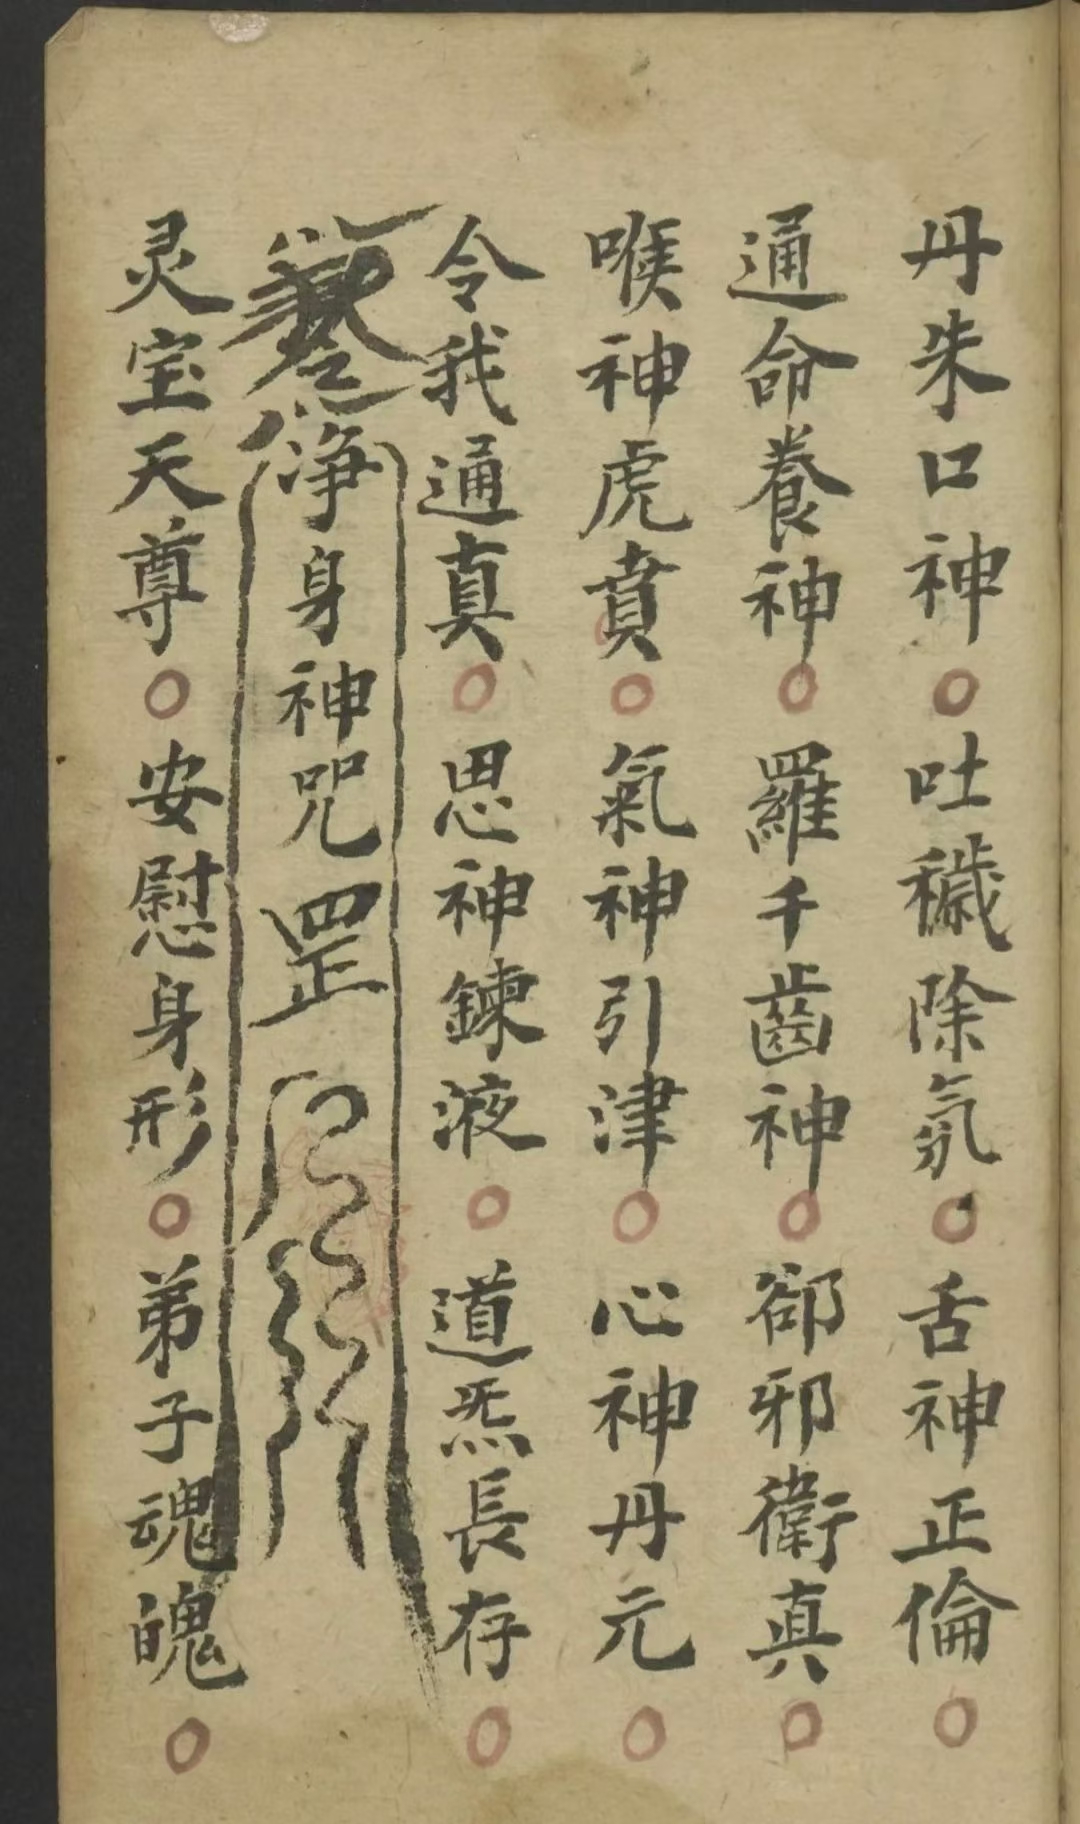 丹朱口神○吐穢除氛○舌神正倫○
通命養神○羅千齒神○郤邪衛真○
喉神虎賁○氣神引津○心神丹元○
令我通真○思神鍊液○道炁長存○
淨身神咒罡
灵宝天尊○安慰身形○弟子魂魄○